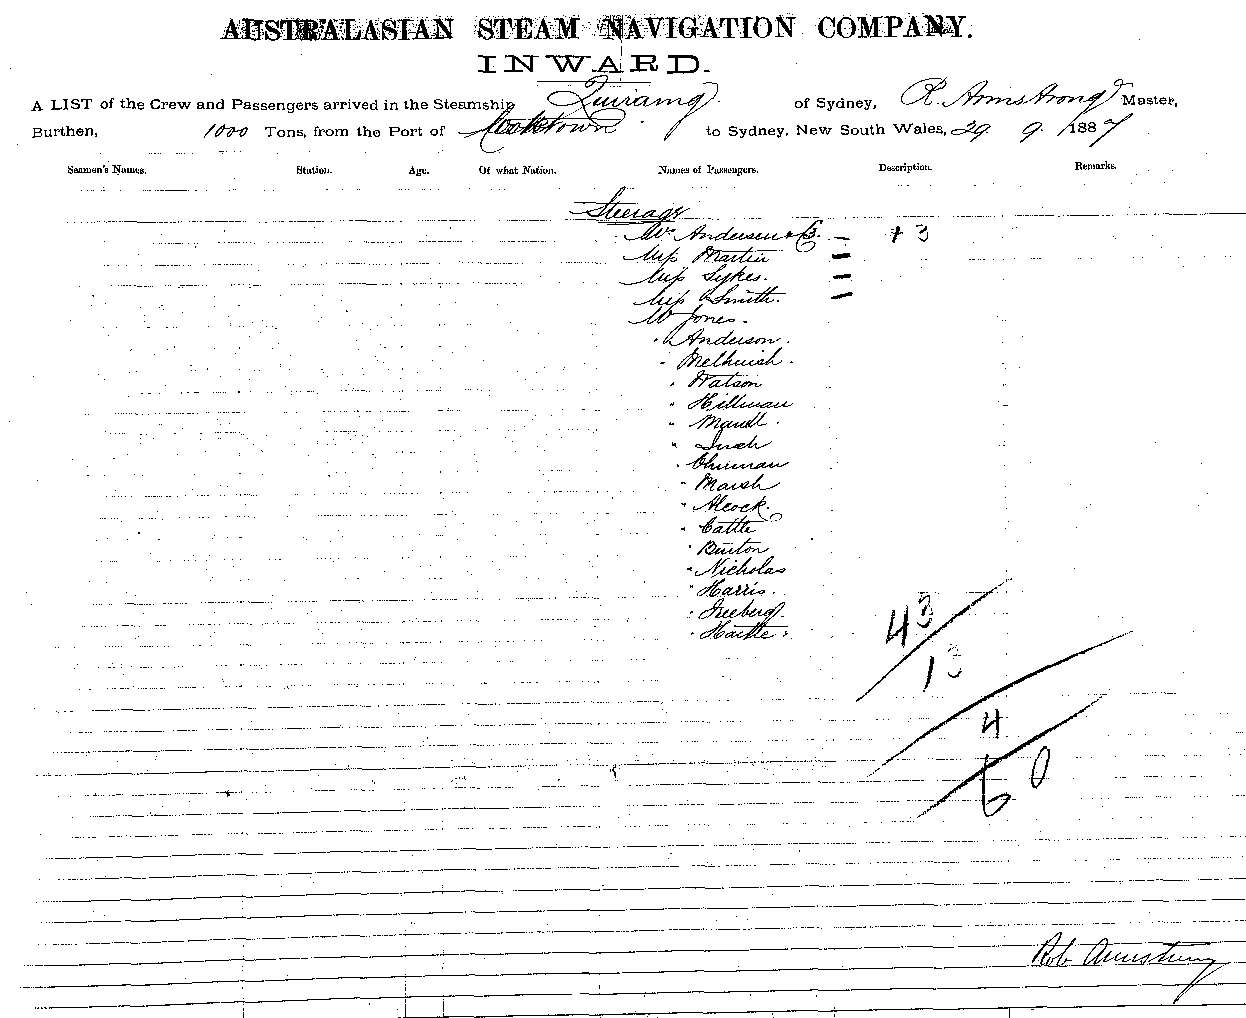 AUSTRALASIAN STEAM NAVIGATION COMPANY.
INWARD.
A LIST of the Crew and Passengers arrived in the Steamship Quiraing of Sydney, R. Armstrong Master,
Burthen, 1000 Tons, from the Port of Cooktown to Sydney, New South Wales, 29 9 1887
Seamen's Names. Station. Age. Of what Nation. Names of Passengers. Description. Remarks.
Steerage
Mrs Andersen + 3. — + 3
Miss Martin —
Miss Sykes. —
Miss Smith. —
Mr Jones.
" Anderson.
" Melhuish.
" Watson
" Hillman
" Mandl.
" Inch
" Ohirman
" Marsh
" Alcock.
" Cattle
" Buxton
" Nicholas
" Harris.
" Iceberg
" Hartle.
43
13
4
60
Rob Armstrong